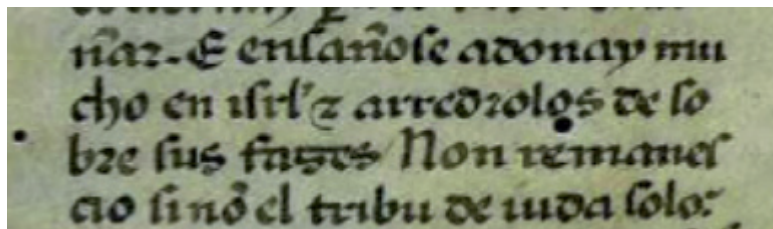 ñar. E ensañose adonay mu
cho en isrł' ⁊ arredrolos de so
bre sus fazes Non remanes
cio sinõ el tribu de iuda solo: